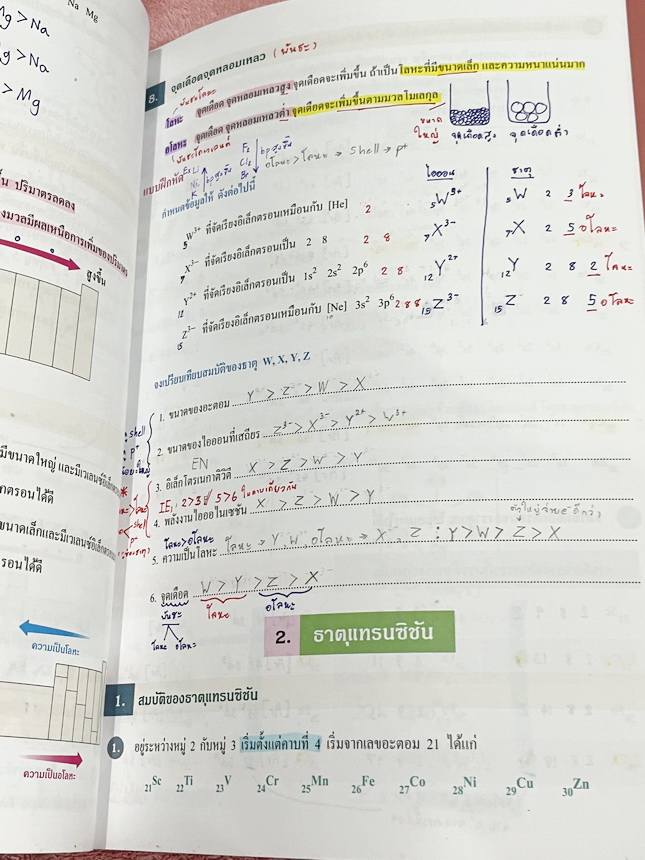 Na Mg
Mg > Na
g > Na
> Mg
8. จุดเดือดจุดหลอมเหลว (พันธะ)
พันธะโลหะ
โลหะ จุดเดือด จุดหลอมเหลวสูง จุดเดือดจะเพิ่มขึ้น ถ้าเป็นโลหะที่มีขนาดเล็ก และความหนาแน่นมาก
อโลหะ จุดเดือด จุดหลอมเหลวต่ำ จุดเดือดจะเพิ่มขึ้นตามมวลโมเลกุล
ขนาดใหญ่ จุดเดือดสูง จุดเดือดต่ำ
F₂
Cl₂
Br
bp สูงขึ้น
อโลหะ > โลหะ → shell → p⁺
แบบฝึกหัด
กำหนดข้อมูลให้ ดังต่อไปนี้
ไอออน ธาตุ
₅W³⁺ ที่จัดเรียงอิเล็กตรอนเหมือนกับ [He] 2 ₅W³⁺ ₅W 2 3 โลหะ
₇X³⁻ ที่จัดเรียงอิเล็กตรอนเป็น 2 8 2 8 ₇X³⁻ ₇X 2 5 อโลหะ
₁₂Y²⁺ ที่จัดเรียงอิเล็กตรอนเป็น 1s² 2s² 2p⁶ 2 8 ₁₂Y²⁺ ₁₂Y 2 8 2 โลหะ
₁₅Z³⁻ ที่จัดเรียงอิเล็กตรอนเหมือนกับ [Ne] 3s² 3p⁶ 2 8 8 ₁₅Z³⁻ ₁₅Z 2 8 5 อโลหะ
จงเปรียบเทียบสมบัติของธาตุ W, X, Y, Z
1. ขนาดของอะตอม Y > Z > W > X
2. ขนาดของไอออนที่เสถียร Z³⁻ > X³⁻ > Y²⁺ > W³⁺
EN
3. อิเล็กโตรเนกาติวิตี X > Z > W > Y
IE₁ 2>3 5>6 ในคาบเดียวกัน
4. พลังงานไอออไนเซชัน X > Z > W > Y
โลหะ > อโลหะ
5. ความเป็นโลหะ โลหะ → Y, W, อโลหะ → X, Z : Y > W > Z > X
6. จุดเดือด W > Y > Z > X
พันธะ โลหะ อโลหะ
โลหะ อโลหะ
shell
p⁺
สูงขึ้น
ความเป็นโลหะ
ความเป็นอโลหะ
2. ธาตุแทรนซิชัน
1. สมบัติของธาตุแทรนซิชัน
1. อยู่ระหว่างหมู่ 2 กับหมู่ 3 เริ่มตั้งแต่คาบที่ 4 เริ่มจากเลขอะตอม 21 ได้แก่
₂₁Sc ₂₂Ti ₂₃V ₂₄Cr ₂₅Mn ₂₆Fe ₂₇Co ₂₈Ni ₂₉Cu ₃₀Zn